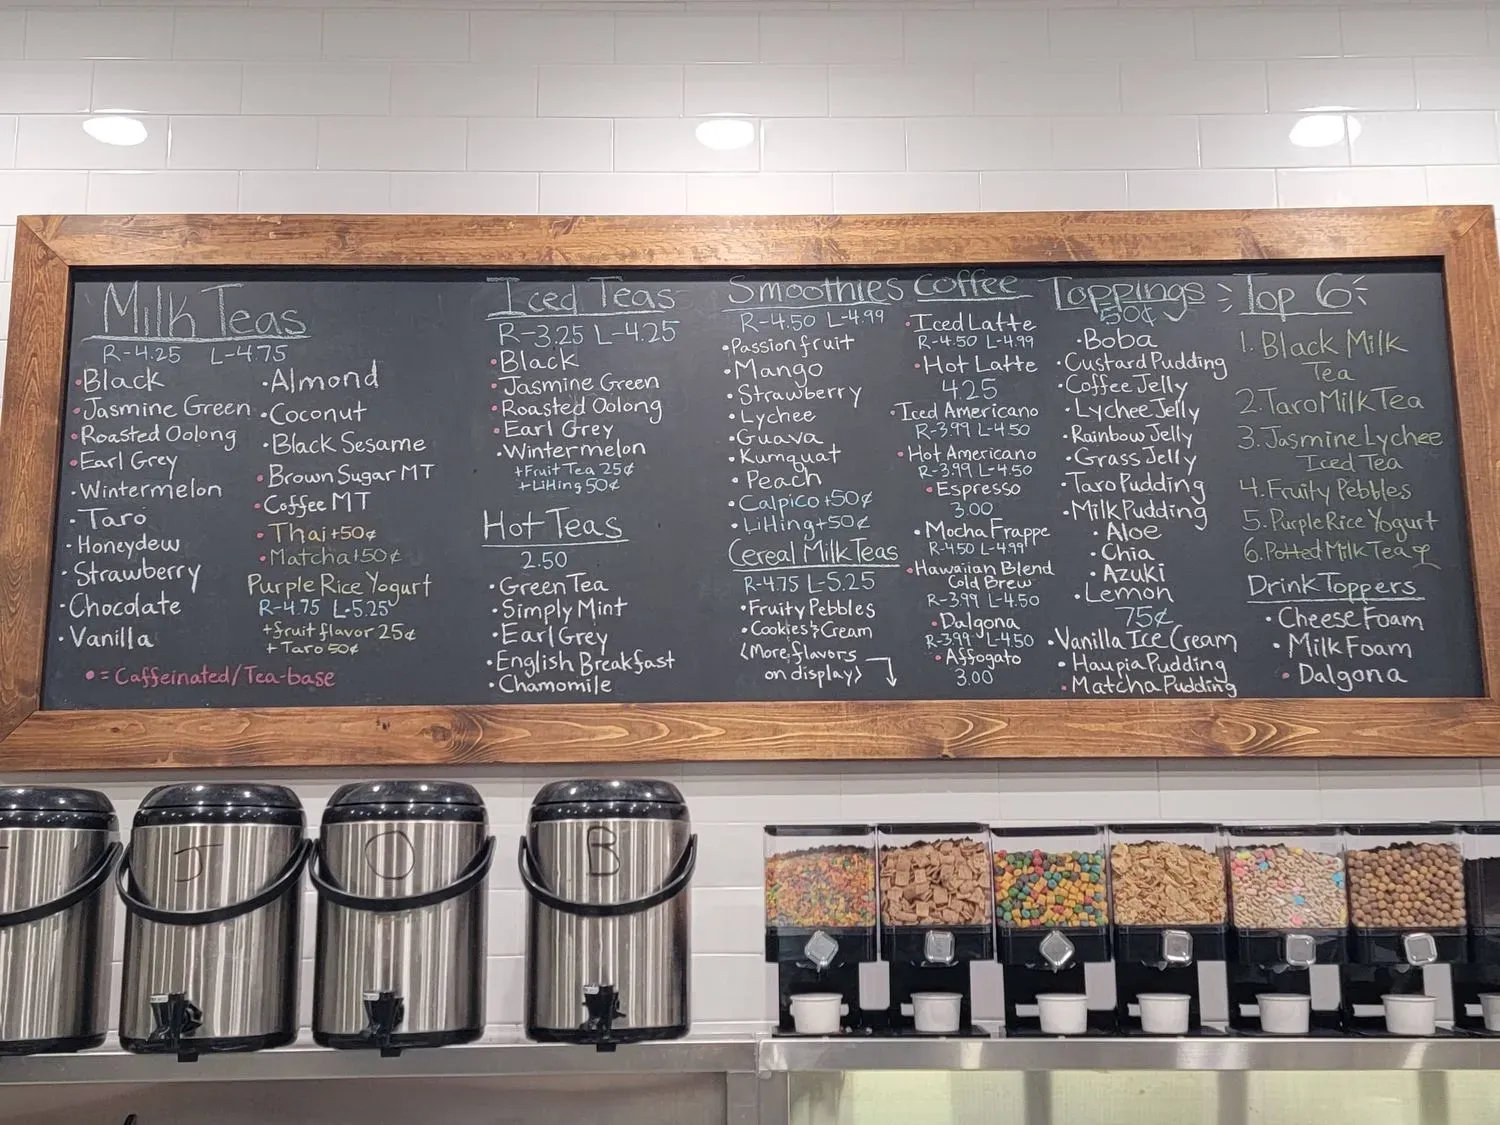 Milk Teas
R-4.25 L-4.75
•Black
•Jasmine Green
•Roasted Oolong
•Earl Grey
•Wintermelon
•Taro
•Honeydew
•Strawberry
•Chocolate
•Vanilla
•Almond
•Coconut
•Black Sesame
•Brown Sugar MT
•Coffee MT
•Thai +50¢
•Matcha +50¢
Purple Rice Yogurt
R-4.75 L-5.25
+fruit flavor 25¢
+ Taro 50¢
• = Caffeinated/Tea-base
Iced Teas
R-3.25 L-4.25
•Black
•Jasmine Green
•Roasted Oolong
•Earl Grey
•Wintermelon
+Fruit Tea 25¢
+LiHing 50¢
Hot Teas
2.50
•Green Tea
•Simply Mint
•Earl Grey
•English Breakfast
•Chamomile
Smoothies
R-4.50 L-4.99
•Passionfruit
•Mango
•Strawberry
•Lychee
•Guava
•Kumquat
•Peach
•Calpico +50¢
•LiHing +50¢
Cereal Milk Teas
R-4.75 L-5.25
•Fruity Pebbles
•Cookies & Cream
(More flavors
on display)
Coffee
•Iced Latte
R-4.50 L-4.99
•Hot Latte
4.25
•Iced Americano
R-3.99 L-4.50
•Hot Americano
R-3.99 L-4.50
•Espresso
3.00
•Mocha Frappe
R-4.50 L-4.99
•Hawaiian Blend
Cold Brew
R-3.99 L-4.50
•Dalgona
R-3.99 L-4.50
•Affogato
3.00
Toppings
50¢
•Boba
•Custard Pudding
•Coffee Jelly
•Lychee Jelly
•Rainbow Jelly
•Grass Jelly
•Taro Pudding
•Milk Pudding
•Aloe
•Chia
•Azuki
•Lemon
75¢
•Vanilla Ice Cream
•Haupia Pudding
•Matcha Pudding
Top 6
1. Black Milk
Tea
2. Taro Milk Tea
3. Jasmine Lychee
Iced Tea
4. Fruity Pebbles
5. Purple Rice Yogurt
6. Potted Milk Tea
Drink Toppers
•Cheese Foam
•Milk Foam
•Dalgona
J
O
B